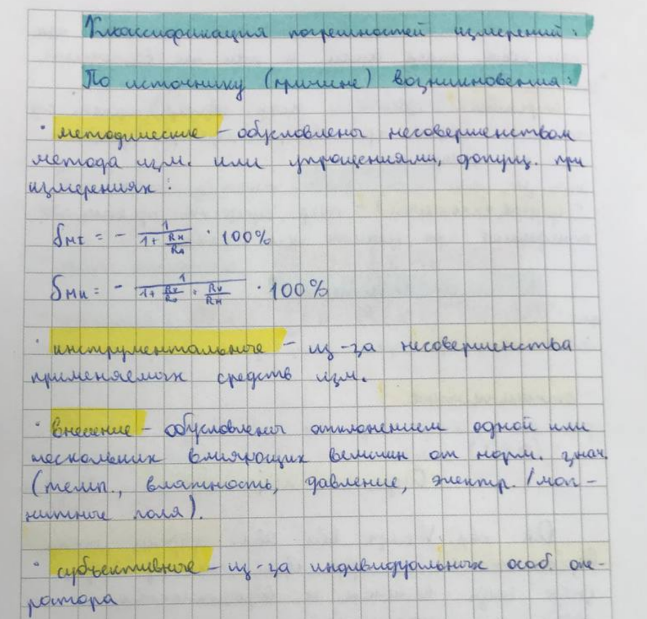 Классификация погрешностей измерений:
По источнику (причине) возникновения:
· методические – обусловлены несовершенством
метода изм. или упрощениями, допущ. при
измерениях:
δмI = - 1 / (1 + Rн/RА) · 100%
δмu = - 1 / (1 + Rv/R₀ + Rv/Rн) · 100%
· инструментальные – из-за несовершенства
применяемых средств изм.
· внешние – обусловлены отклонением одной или
нескольких влияющих величин от норм. знач.
(темп., влажность, давление, электр./маг-
нитные поля).
· субъективные – из-за индивидуальных особ. опе-
ратора